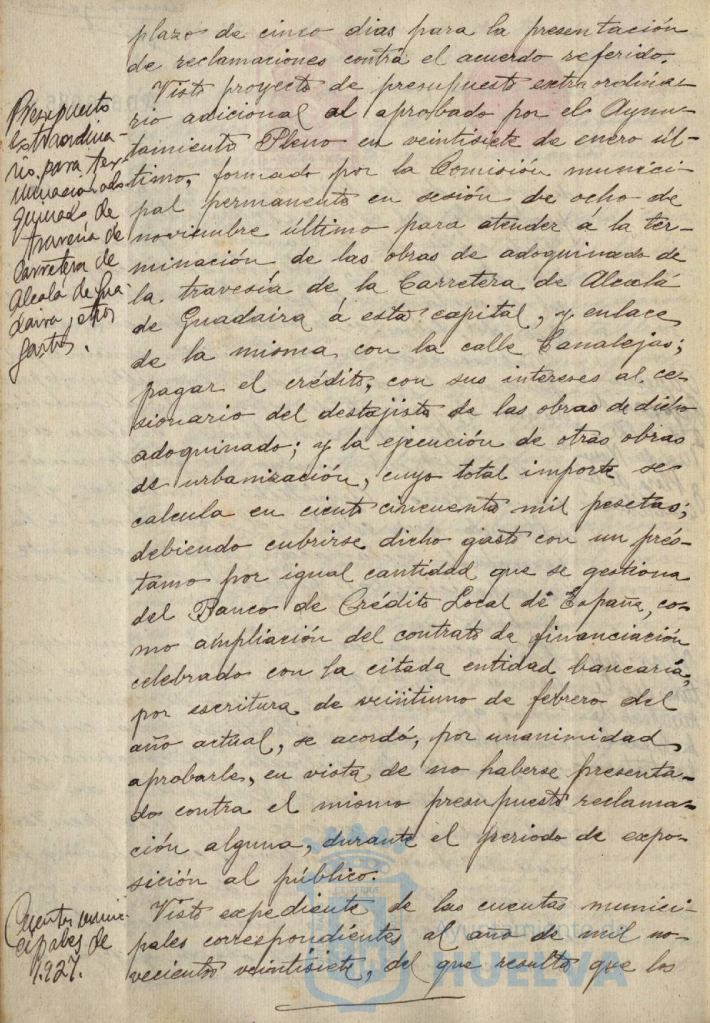 plazo de cinco dias para la presentación
de reclamaciones contra el acuerdo referido.
Presupuesto
extraordina-
rio para ter-
minación ado-
quinado de
travesía de
Carretera de
Alcalá de Gua-
daira y otros
gastos.
Visto proyecto de presupuesto extraordina-
rio adicional al aprobado por el Ayun-
tamiento Pleno en veintisiete de enero úl-
timo, formado por la Comisión munici-
pal permanente en sesión de ocho de
noviembre último para atender á la ter-
minación de las obras de adoquinado de
la travesía de la Carretera de Alcalá
de Guadaira á esta capital, y enlace
de la misma con la calle Canalejas;
pagar el crédito, con sus intereses al ce-
sionario del destajista de las obras de dicho
adoquinado; y la ejecución de otras obras
de urbanización, cuyo total importe se
calcula en ciento cincuenta mil pesetas;
debiendo cubrirse dicho gasto con un prés-
tamo por igual cantidad que se gestiona
del Banco de Crédito Local de España, co-
mo ampliación del contrato de financiación
celebrado con la citada entidad bancaria,
por escritura de veintiuno de febrero del
año actual, se acordó, por unanimidad,
aprobarle, en vista de no haberse presenta-
do contra el mismo presupuesto reclama-
ción alguna, durante el periodo de expo-
sición al público.
Cuentas muni-
cipales de
1.927.
Visto expediente de las cuentas munici-
pales correspondientes al año de mil no-
vecientos veintisiete, del que resulta que los
Ayuntamiento
HUELVA